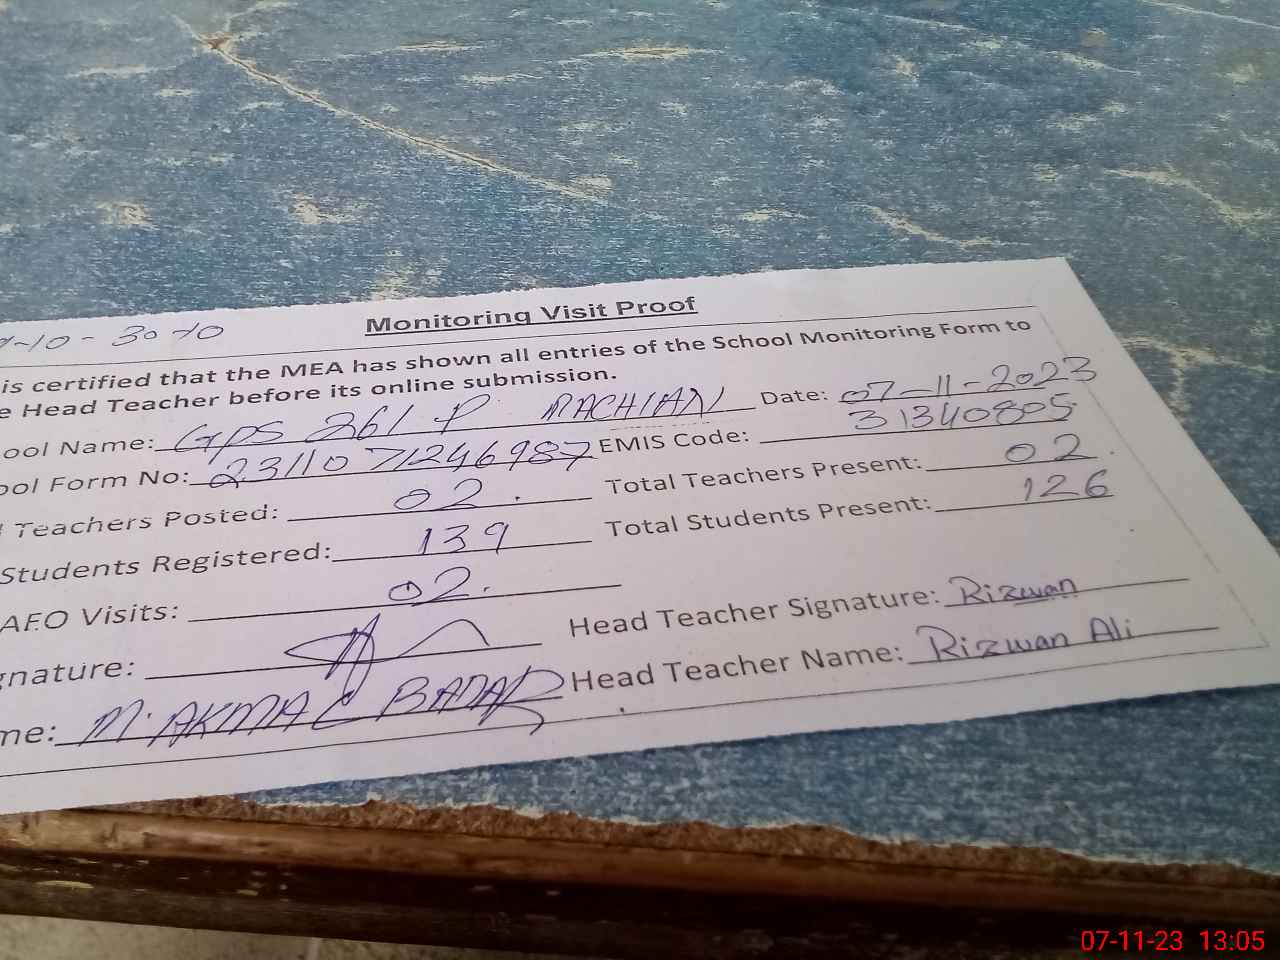 -10 - 30-10
Monitoring Visit Proof
is certified that the MEA has shown all entries of the School Monitoring Form to
e Head Teacher before its online submission.
ool Name: GPS 261 P Date: 07-11-2023
ool Form No: 2311071246987 EMIS Code: 31340805
Teachers Posted: 02. Total Teachers Present: 02.
Students Registered: 139 Total Students Present: 126
AEO Visits: 02.
gnature: Head Teacher Signature: Rizwan
me: M. AKMAL BADAR Head Teacher Name: Rizwan Ali
07-11-23 13:05